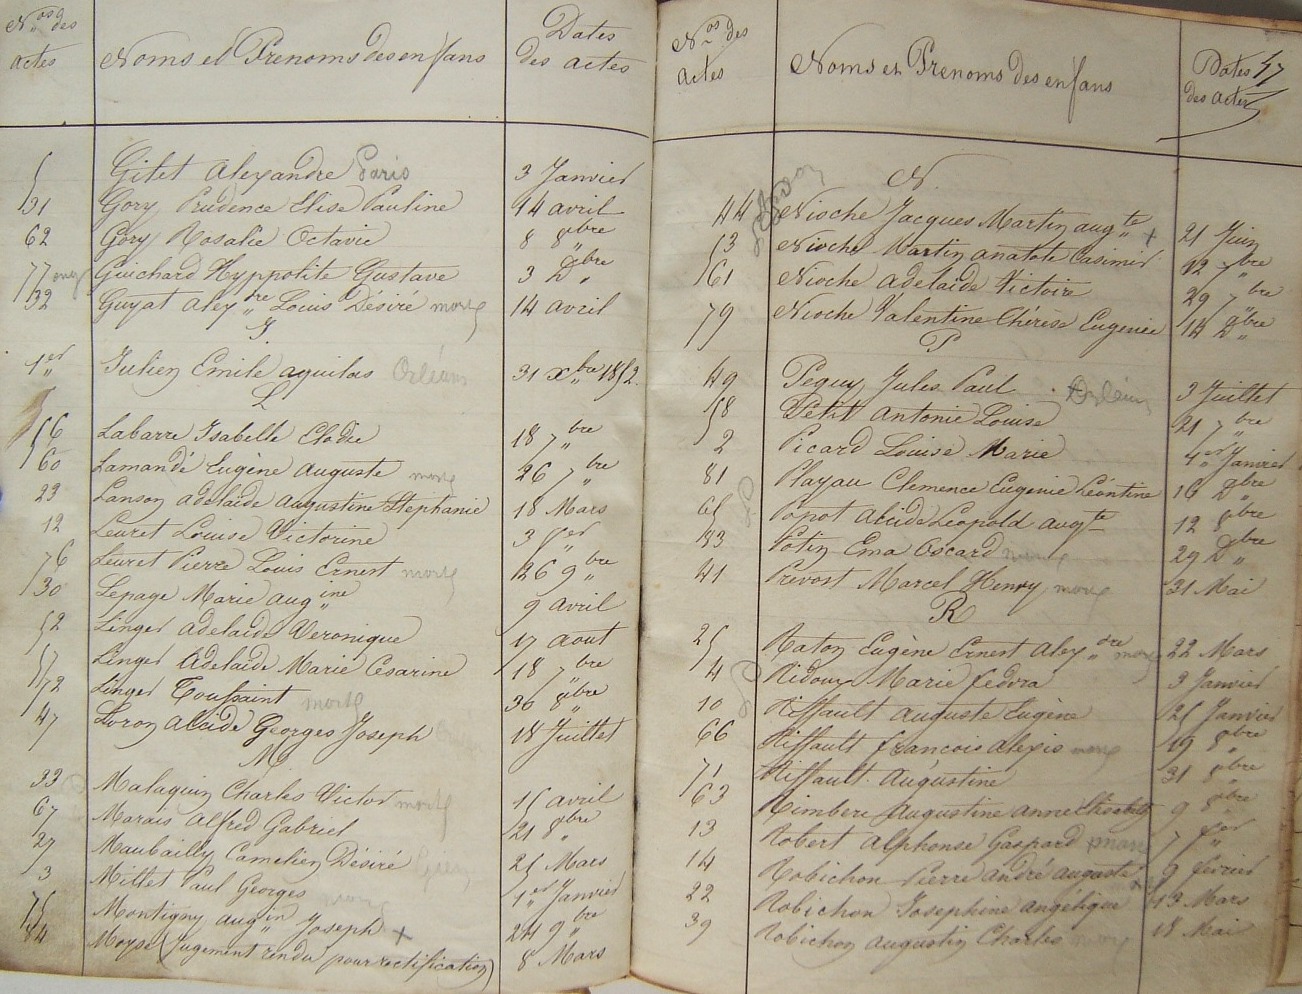 Nos des actes
Noms et Prenoms des enfans
Dates des actes
5 Gitet Alexandre Paris 3 Janvier
31 Gory Prudence Elise Pauline 14 avril
62 Gory Rosalie Octavie 8 8bre
77 Guichard Hyppolite Gustave 3 Dbre
32 Guyat Alexdre Louis Désiré mort 14 avril
J
1er Julien Emile aquilas Orléans 31 xbre 1852
L
56 Labarre Isabelle Elodie 18 7bre
60 Lamandé Eugène Auguste mort 26 7bre
23 Lanson adelaide augustine Stephanie 18 Mars
12 Leuret Louise Victorine 3 fer
76 Leuret Pierre Louis Ernest mort 26 9bre
30 Lepage Marie augine 9 avril
52 Linget adelaide Veronique 17 aout
57 Linget Adelaide Marie Césarine 18 7bre
72 Linget Toussaint mort 30 8bre
47 Loron Alcide Georges Joseph 18 Juillet
M
33 Malaquin Charles Victor mort 15 avril
67 Marais Alfred Gabriel 21 8bre
27 Maubailly Camelien Désiré 25 Mars
3 Millet Paul Georges 1er Janvier
75 Montigny augin Joseph + 24 9bre
24 Moyse (Jugement rendu pour rectification) 8 Mars
Nos des actes
Noms et Prenoms des enfans
Dates des actes
57
N
44 Nioche Jacques Martin augte + 21 Juin
53 Nioche Martin anatole Casimir 12 7bre
61 Nioche adelaide Victoire 29 7bre
79 Nioche Valentine Thérèse Eugenie 14 Dbre
P
49 Peguy Jules Paul Orléans 3 Juillet
58 Petit Antonie Louise 21 7bre
2 Picard Louise Marie 4 Janvier
81 Playau Clemence Eugenie Léontine 16 Dbre
65 Popot Alcide Leopold augte 12 8bre
83 Potin Ema Oscard mort 29 Dbre
41 Prevost Marcel Henry mort 31 Mai
R
25 Raton Eugène Ernest Alexdre mort 22 Mars
4 Ridoux Marie fedora 3 Janvier
10 Riffault Auguste Eugène 25 Janvier
66 Riffault françois Alexis mort 19 8bre
71 Riffault Augustine 31 8bre
63 Rimbere Augustine anne Elisabeth 9 8bre
13 Robert Alphonse Gaspard mort 7 fer
14 Robichon Pierre andré auguste 9 février
22 Robichon Josephine angélique 13 Mars
39 Robichon Augustin Charles mort 18 Mai